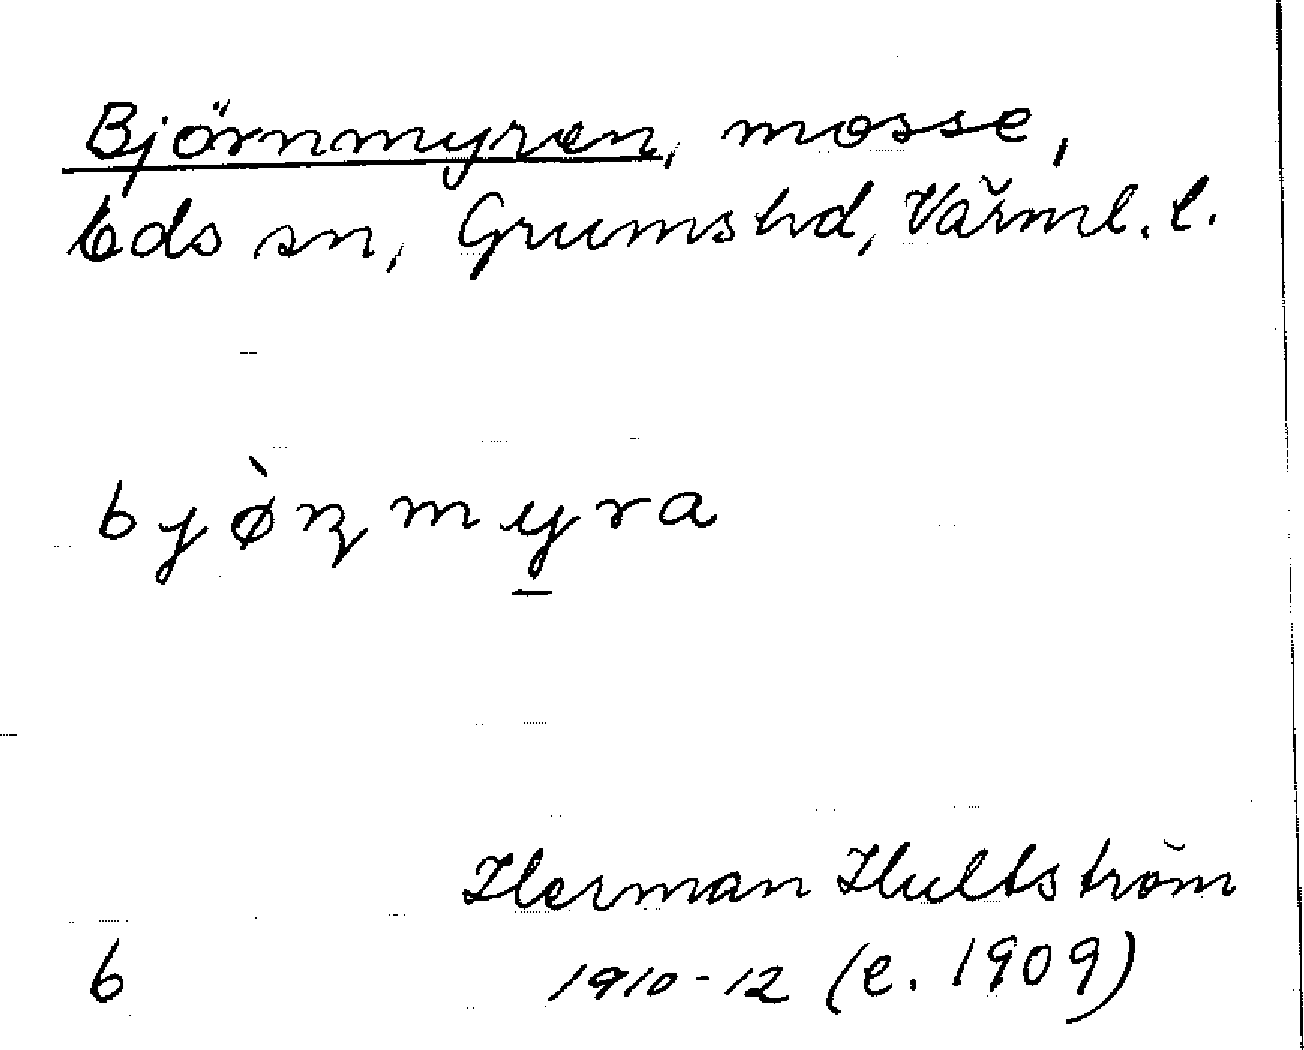 Björnmyren, mosse,
Eds sn, Grums hd, Värml. l.
bjø̀ɳmy̲ra
Herman Hultström
6 1910-12 (e. 1909)